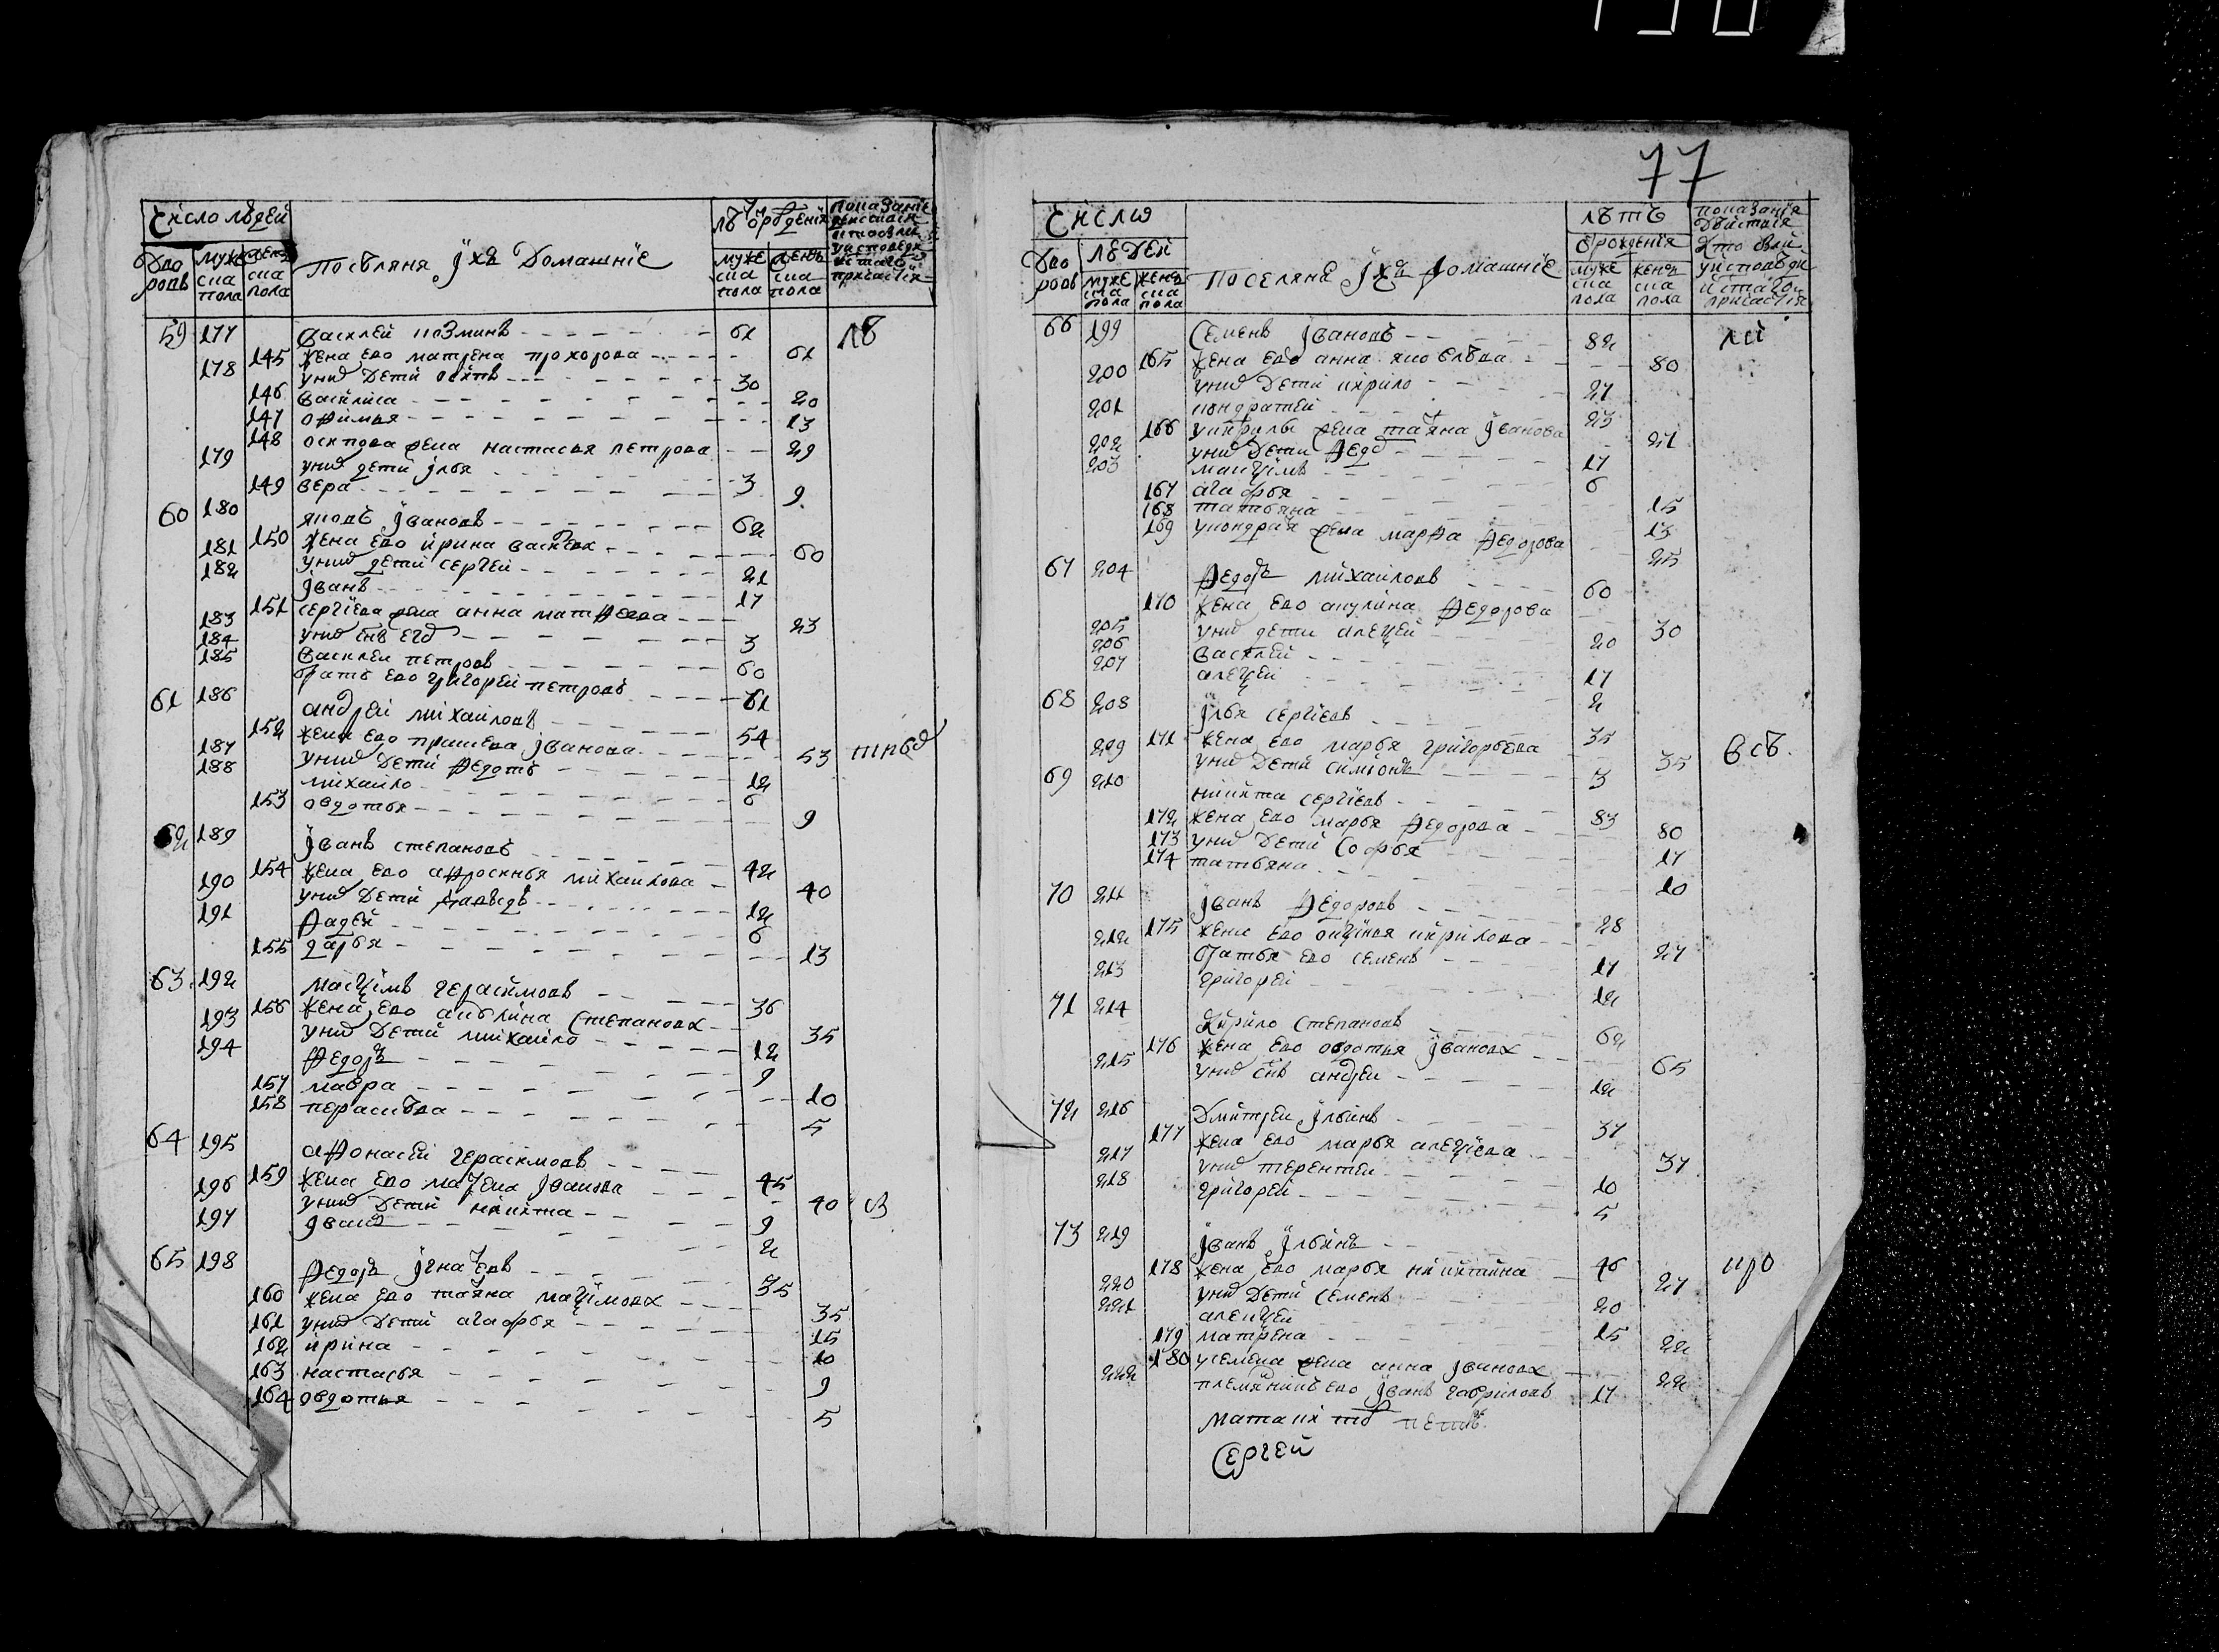 77
Число людей
Дво ровъ
муже ска пола
женъ ска пола
Поселяня іхъ Домашніе
муже ска пола
женъ ска пола
59 177 Василей козминъ 61
145 жена ево матрена прохорова 61
178 у них дети осипъ 30
146 василиса 20
147 офимья 13
148 осипова жена настасья петрова 29
179 у них дети ілья 3
149 вера 9
60 180 яковъ івановъ 62
150 жена ево ирина васильева 60
181 у них дети сергей 21
182 іванъ 17
151 сергіева жена анна матѳеева 23
183 у них снъ 3
184 василей петровъ 60
185 братъ ево григорей петровъ 61
61 186 андрей михайловъ 54
152 жена ево прасковя іванова 53
187 у них дети ѳедотъ 12
188 михайло 6
153 овдотья 9
62 189 іванъ степановъ 42
154 жена ево аѳросинья михайлова 40
190 у них дети давыдъ 12
191 ѳадей 6
155 дарья 13
63 192 маѯімъ герасимовъ 36
156 жена ево акулина степановa 35
193 у них дети михайло 12
194 ѳедоръ 9
157 мавра 10
158 парасковa 5
64 195 аѳонасеи герасимовъ 45
159 жена ево іванова 40
196 у них дети никита 9
197 іванъ 2
65 198 ѳедоръ ігнатевъ 35
160 жена ево татяна маѯімова 35
161 у них дети агафья 15
162 ирина 10
163 настасья 9
164 овдотья 5
Число
людей
лѣтъ
ѿ рожденія
Дво ровъ
муже ска пола
женъ ска пола
Поселяне іхъ Домашніе
муже ска пола
женъ ска пола
66 199 Семенъ івановъ 82
165 жена ево анна яковлева 80
200 у них дети кирило 27
201 кондратей 23
166 у кирилы жена татяна іванова 21
202 у них дети 17
203 маѯімъ 6
167 агафья 15
168 татьяна 13
169 у кондратя жена марѳа ѳедорова 25
67 204 ѳедоръ михайловъ 60
170 жена ево акулина ѳедорова 30
205 у них дети алеѯей 20
206 василей 17
207 алеѯей 2
68 208 ілья сергіевъ 35
171 жена ево марья григорьева 35 всѣ.
209 у них дети симіонъ 3
69 210 никита сергіевъ 83
172 жена ево марья ѳедорова 80
173 у них дети софья 17
174 татьяна 10
70 211 іванъ ѳедоровъ 28
175 жена ево кирилова 27
212 братья ево семенъ 17
213 григорей 12
71 214 Кирило степановъ 62
176 жена ево овдотья іванова 65
215 у них снъ андрей 12
72 216 Дмитрей ільинъ 37
177 жена ево марья алеѯіева 37
217 у них терентей 10
218 григорей 5
73 219 іванъ ільинъ 46
178 жена ево марья никитина 27
220 у них дети семенъ 20
221 алеѯей 15
179 матрена 22
180 у семена жена анна іванова 22
222 племянникъ ево іванъ гавриловъ 17
Сергей